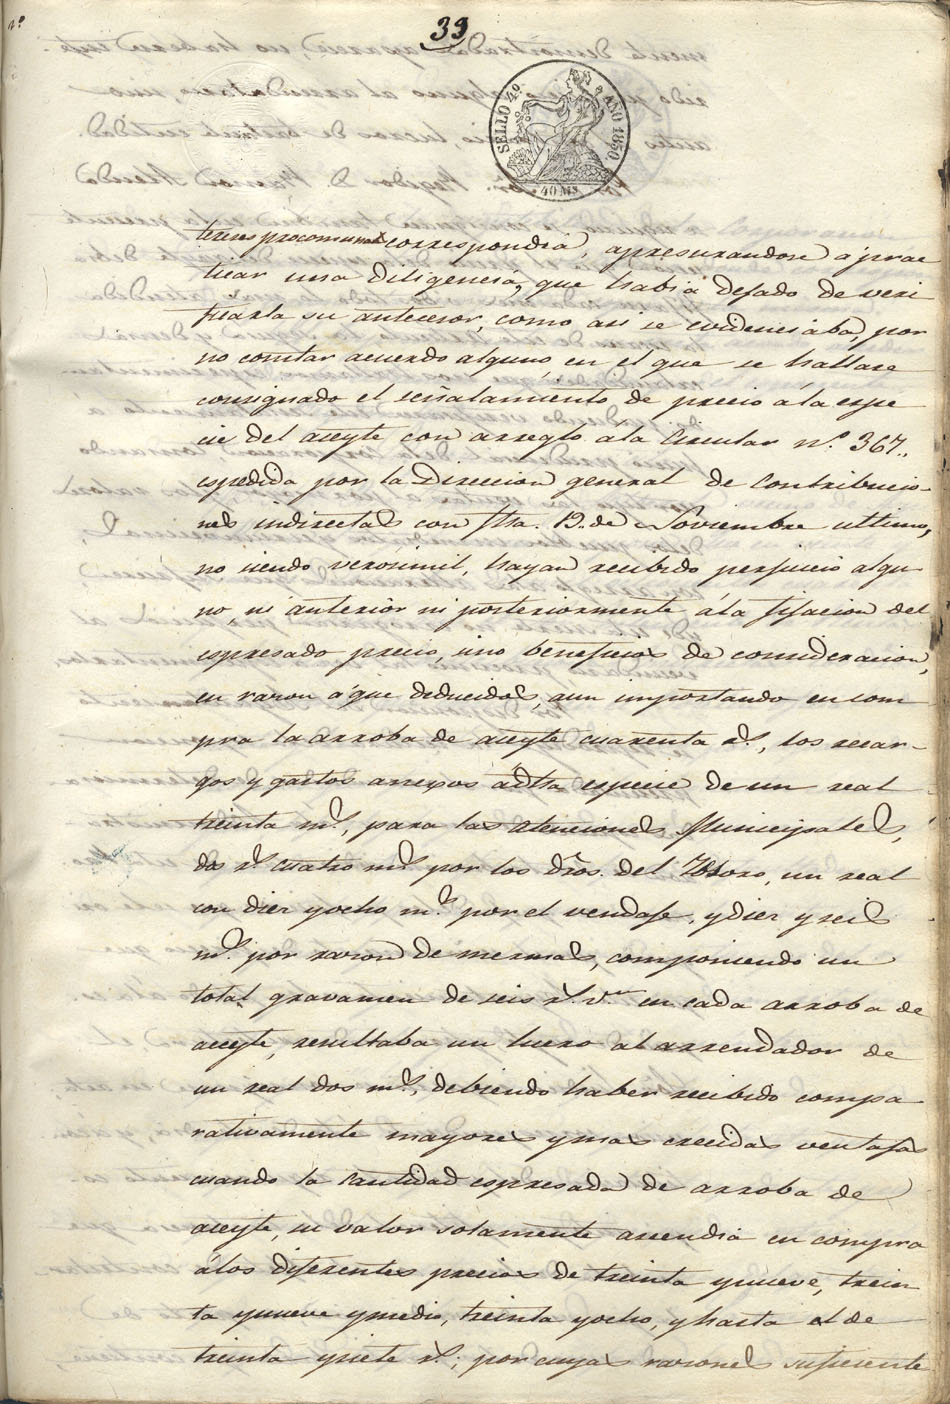 39
SELLO 4º. AÑO 1850.
40 MS.
tereses procomunal correspondia, apresurandose á prac
ticar una diligencia, que habia dejado de veri
ficarla su antecesor, como asi se evidenciaba, por
no constar acuerdo alguno, en el que se hallase
consignado el señalamiento de precio á la espe
cie del aceyte con arreglo á la Circular n.º 367.,
espedida por la Direccion general de Contribucio-
nes indirectas con fha. 19. de Noviembre ultimo,
no siendo verosimil, hayan recibido perjuicio algu
no, ni anterior ni posteriormente á la fijacion del
espresado precio, sino beneficios de consideracion,
en razon á que deducidos, aun importando en com
pra la arroba de aceyte cuarenta r.s, los recar-
gos y gastos anexos á dha especie de un real
treinta m.s, para las atenciones Municipales,
dos r.s cuatro m.s por los dros. del Tesoro, un real
con diez y ocho m.s por el vendaje, y diez y seis
m.s por razon de mermas, componiendo un
total gravamen de seis r.s v.n en cada arroba de
aceyte, resultaba un lucro al arrendador de
un real dos m.s, debiendo haber recibido compa
rativamente mayores y mas crecidas ventajas
cuando la cantidad espresada de arroba de
aceyte, su valor solamente ascendia en compra
á los diferentes precios de treinta y nueve, trein
ta y nueve y medio, treinta y ocho, y hasta el de
treinta y siete r.s; por cuyas razones suficiente